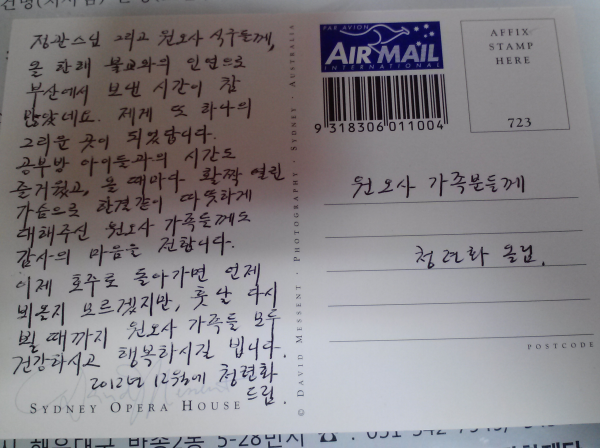 정관스님 그리고 원오사 식구들께,
올 한해 불교와의 인연으로
부산에서 보낸 시간이 참
많았네요. 제게 또 하나의
그리운 곳이 되었답니다.
공부방 아이들과의 시간도
즐거웠고, 올 때마다 활짝 열린
가슴으로 한결같이 따뜻하게
대해주신 원오사 가족들께도
감사의 마음을 전합니다.
이제 호주로 돌아가면 언제
뵈올지 모르겠지만, 훗날 다시
뵐 때까지 원오사 가족들 모두
건강하시고 행복하시길 빕니다.
2012년 12월에 청련화
드림.
SYDNEY OPERA HOUSE
© DAVID MESSENT · PHOTOGRAPHY · SYDNEY · AUSTRALIA
PAR AVION
AIR MAIL
INTERNATIONAL
9 318306 011004
AFFIX
STAMP
HERE
723
원오사 가족분들께
청련화 올림.
POSTCODE
해운대구 반송2동 5-28번지 ☎ : 051-542-